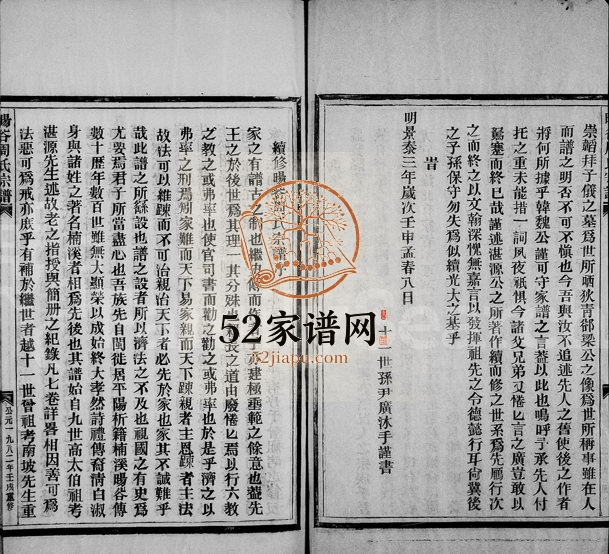 崇韜拜子儀之墓為世所哂狄青卻梁公之像為世所稱事雖在人
而譜之明否不可不慎也今吾與汝不追述先人之舊使後之作者
將何所據乎韓魏公謹可守家譜之言蓋以此也嗚呼予承先人付
托之重未能措一詞夙夜祇懼今諸父兄弟又惓匕言之廣豈敢以
駑蹇而終已哉謹述湛源公之所著作續而修之世系為先屬行次
之而終之以文翰深愧無嘉言以發揮祖先之令德懿行耳尚冀後
之子孫保守勿失為似續光大之基乎
旹
明景泰三年歲次壬申孟春八日
十一世孫尹廣沐手謹書
續修暘谷周氏宗譜序
家之有譜古之制也繼
建極垂範之餘意也蓋先
王之於後世為其理一其分殊
之道由廢惓匕焉以行六教
之教之或弗率也使官司書而勸之勸之或弗率也於是乎濟之以
弗率之刑焉矧家難而天下易家親而天下踈親者主恩踈者主法
故法可以維踈而不可治親治天下者必先於家也家其不誠難乎
哉此譜之所繇設也譜之設者所以濟法之不及也視國之有史為
尤要焉君子所當盡心也吾族先自閩徙居平陽析籍楠溪暘谷傳
數十歷年數百世雖無大顯榮以成始終大孝然詩禮傳裔清白淑
身與姓譜之著名楠溪者相為先後也其譜始自九世高太伯祖考
湛源先生述故老之指授與簡冊之紀錄凡七卷詳畧相因善可為
法惡可為戒亦庶乎有補於繼世者越十一世曾祖考南坡先生重
暘谷周氏宗譜
公元一九八二年壬戌重修
52家谱网
52jiapu.com